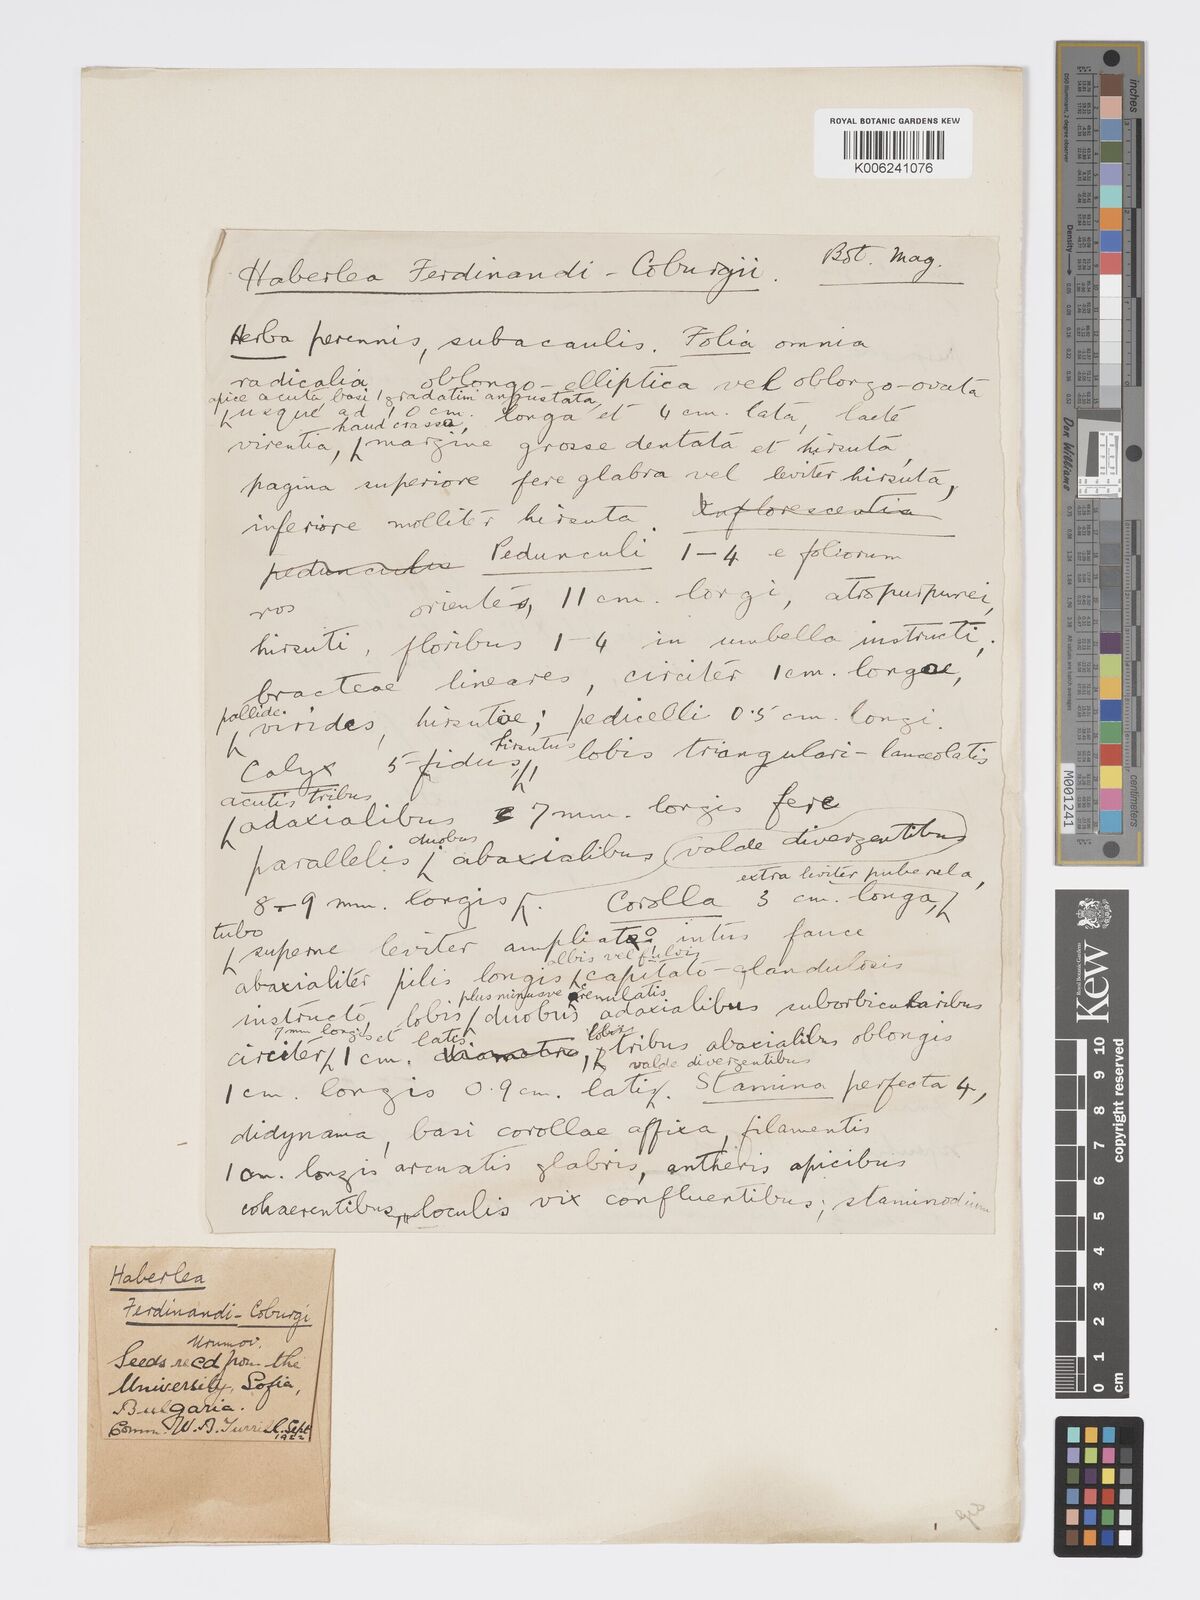 ROYAL BOTANIC GARDENS KEW
K006241076
Haberlea Ferdinandi-Coburgii. Bot. Mag.
Herba perennis, subacaulis. Folia omnia
radicalia, oblongo-elliptica vel oblongo-ovata
apice acuta, basi gradatim angustata,
usque ad 10 cm. longa et 4 cm. lata, laete
haud crassa,
virentia, margine grosse dentata et hirsuta,
pagina superiore fere glabra vel leviter hirsuta,
inferiore molliter hirsuta. Inflorescentia
pedunculus Pedunculi 1-4 e foliorum
ros orientes, 11 cm. longi, atropurpurei,
hirsuti, floribus 1-4 in umbella instructi;
bracteae lineares, circiter 1 cm. longae,
pallide
virides, hirsutae; pedicelli 0.5 cm. longi.
hirsutus
Calyx 5-fidus, lobis triangulari-lanceolatis
acutis tribus
adaxialibus 7 mm. longis fere
duobus
parallelis abaxialibus (valde divergentibus)
extra leviter puberula,
8-9 mm. longis. Corolla 3 cm. longa,
tubo
superne leviter ampliato intus fauce
albis vel fulvis
abaxialiter pilis longis capitato-glandulosis
plus minusve crenulatis
instructo, lobis duobus adaxialibus suborbicularibus
7 mm longis et latis lobis
circiter 1 cm. diametro, tribus abaxialibus oblongis
valde divergentibus
1 cm. longis 0.9 cm. latis. Stamina perfecta 4,
didynama, basi corollae affixa, filamentis
1 cm. longis arcuatis glabris, antheris apicibus
cohaerentibus, loculis vix confluentibus; staminodium
Haberlea
Ferdinandi-Coburgi
Urumov.
Seeds recd from the
University, Sofia,
Bulgaria.
Comm. W.B. Turrill. Sept
1922
inches
D50 Illuminant, 2 degree observer
Density
Don Williams
M001241
Royal Botanic Gardens
KEW
0 1 2 3 4 5 6 7 8 9 10
cm
copyright reserved